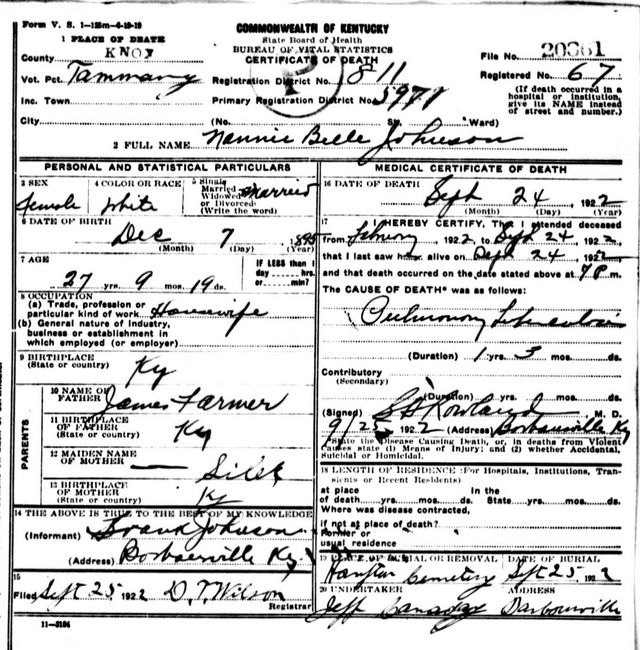 Form V. S. 1-125m-6-19-19
1 PLACE OF DEATH
COMMONWEALTH OF KENTUCKY
State Board of Health
BUREAU OF VITAL STATISTICS
CERTIFICATE OF DEATH
County KNOX
File No.
Vot. Pct. Tammany
Registration District No. 811
Registered No. 67
Inc. Town
Primary Registration District No. 5971
(If death occurred in a hospital or institution, give its NAME instead of street and number.)
City (No. St. Ward)
2 FULL NAME Nannie Belle Johnson
PERSONAL AND STATISTICAL PARTICULARS
3 SEX female
4 COLOR OR RACE White
5 Single Married Widowed or Divorced (Write the word) Married
6 DATE OF BIRTH
Dec 7 1895
(Month) (Day) (Year)
7 AGE
27 yrs. 9 mos. 19 ds.
IF LESS than 1 day hrs. or min.?
8 OCCUPATION
(a) Trade, profession or particular kind of work Housewife
(b) General nature of industry, business or establishment in which employed (or employer)
9 BIRTHPLACE
(State or country) Ky
PARENTS
10 NAME OF FATHER James Farmer
11 BIRTHPLACE OF FATHER
(State or country) Ky
12 MAIDEN NAME OF MOTHER — Siler
13 BIRTHPLACE OF MOTHER
(State or country) Ky
14 THE ABOVE IS TRUE TO THE BEST OF MY KNOWLEDGE
(Informant) Frank Johnson
(Address) Ky
15
Filed Sept 25 1922 D. T. Wilson
Registrar
11-3184
MEDICAL CERTIFICATE OF DEATH
16 DATE OF DEATH
Sept 24 1922
(Month) (Day) (Year)
17 I HEREBY CERTIFY, That I attended deceased
from 1922 to Sept 24 1922
that I last saw h alive on Sept 24 1922
and that death occurred on the date stated above at m.
The CAUSE OF DEATH* was as follows:
Pulmonary
(Duration) 1 yrs. 3 mos. ds.
Contributory
(Secondary)
(Duration) yrs. mos. ds.
(Signed) Rowland M. D.
9/25 1922 (Address) Ky
*State the Disease Causing Death, or, in deaths from Violent Causes state (1) Means of Injury; and (2) whether Accidental, Suicidal or Homicidal.
18 LENGTH OF RESIDENCE (For Hospitals, Institutions, Transients or Recent Residents)
at place of death yrs. mos. ds. In the State yrs. mos. ds.
Where was disease contracted,
if not at place of death?
Former or usual residence
19 PLACE OF BURIAL OR REMOVAL DATE OF BURIAL
Cemetery Sept 25 1922
20 UNDERTAKER ADDRESS
Jeff Barbourville